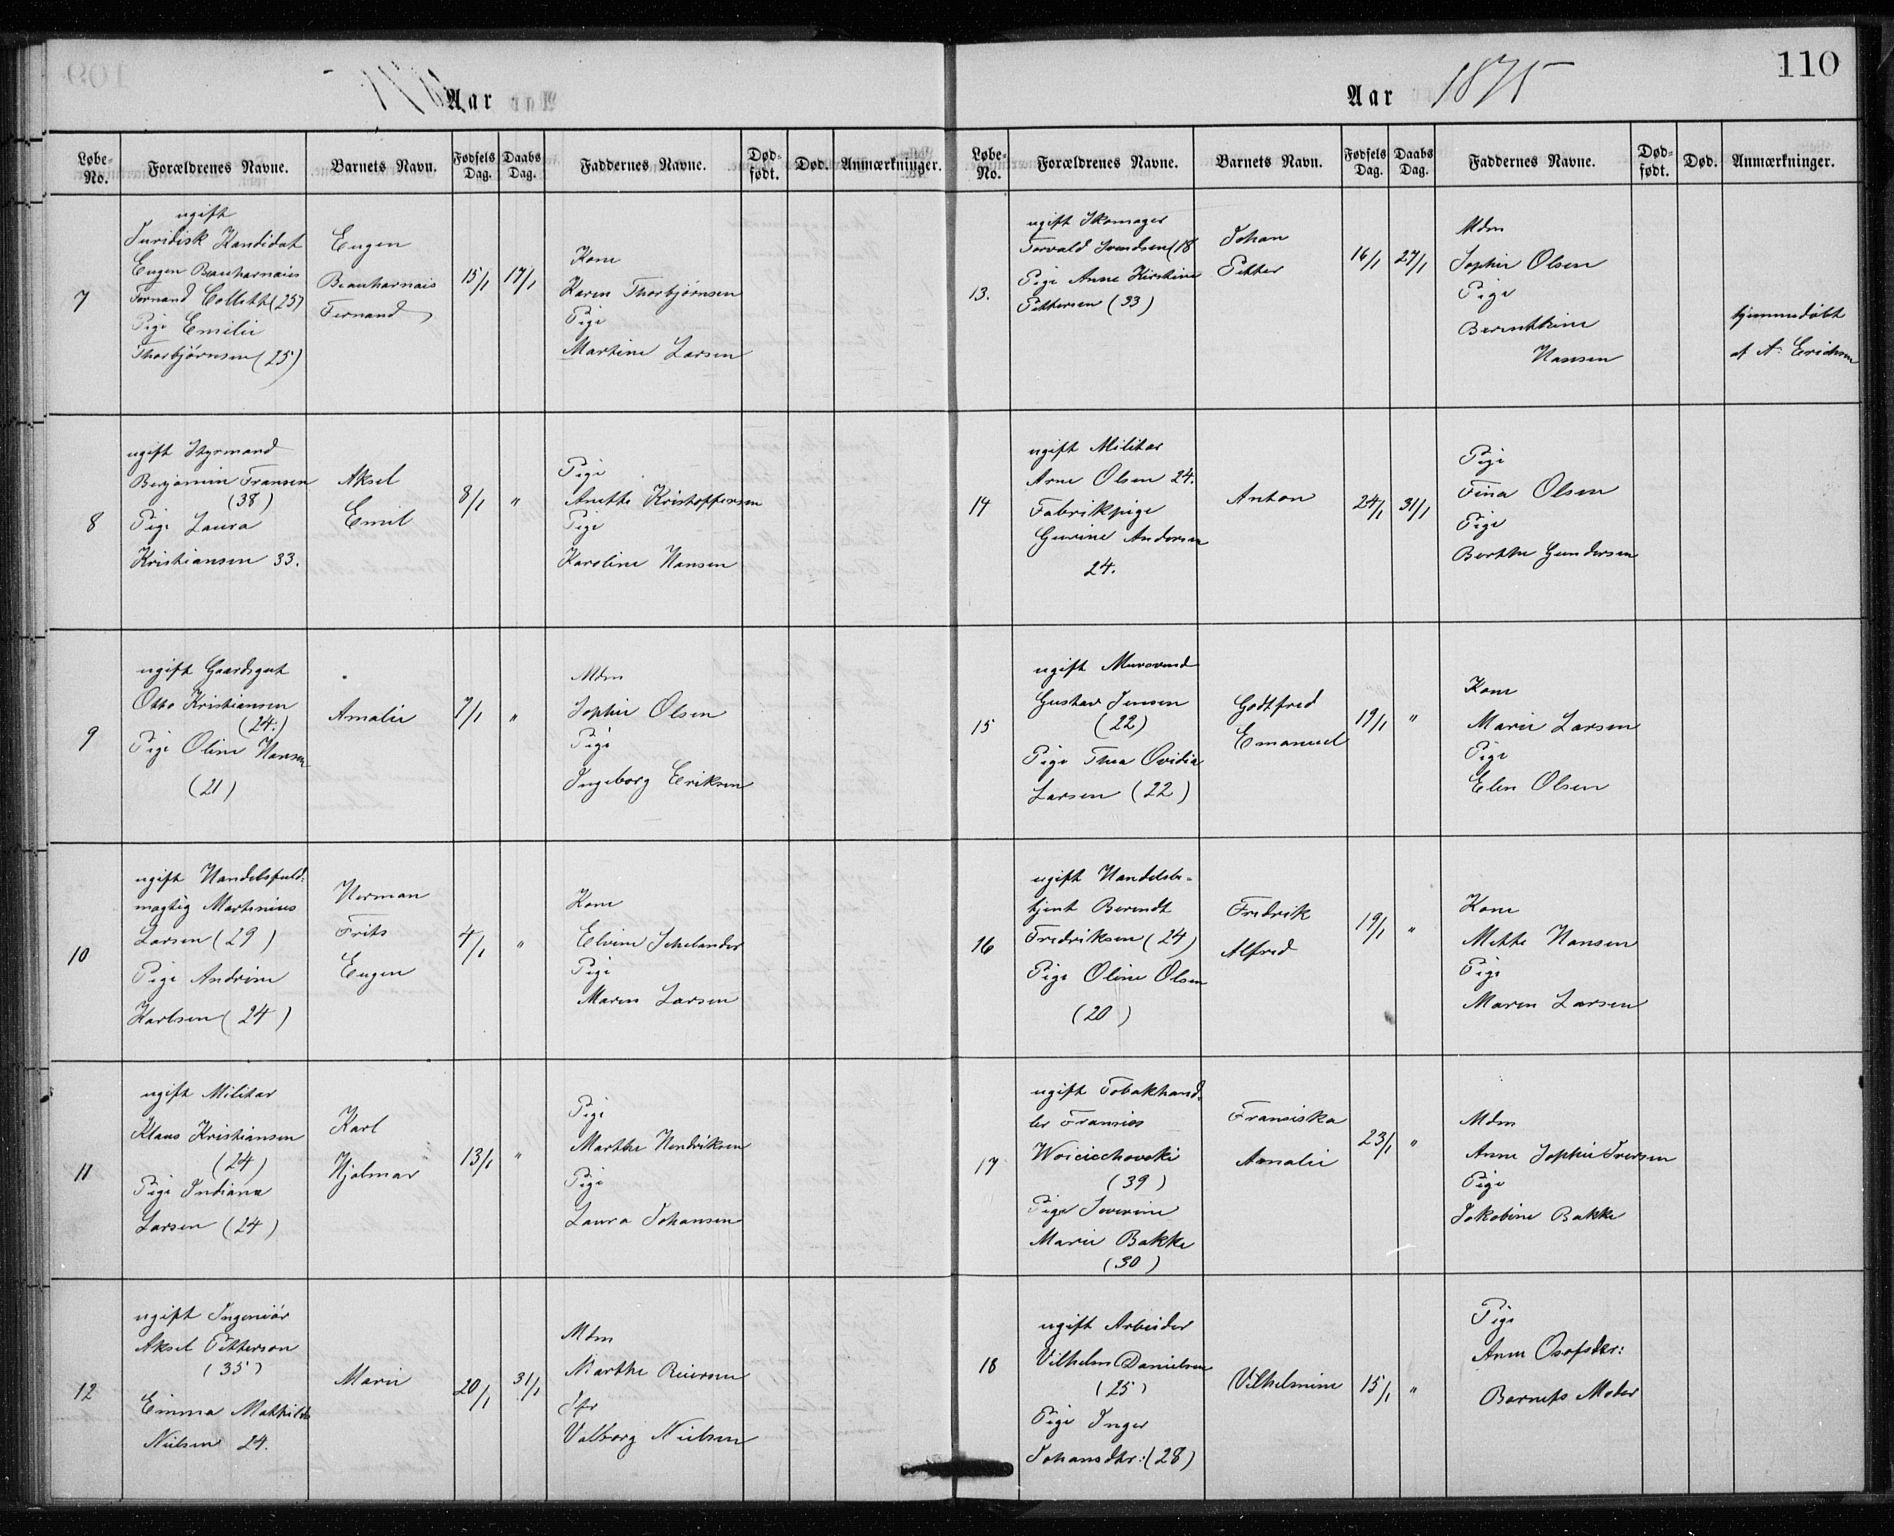 Aar
Løbe-No. Forældrenes Navne. Barnets Navn. Fødsels Dag. Daabs Dag. Faddernes Navne. Død-født. Død. Anmærkninger.
7
ugift
Juridisk Kandidat
Eugen Beauharnais
Fernand Collett (25)
Pige Emilie
Thorbjørnsen (25)
Eugen
Beauharnais
Fernand
15/1
17/1
Kone
Karen Thorbjørnsen
Pige
Martine Larsen
8
ugift Styrmand
Benjamin Fransen
(38)
Pige Laura
Kristiansen 33.
Aksel
Emil
8/1
"
Pige
Anette Kristoffersen
Pige
Karoline Hansen
9
ugift Gaardsgut
Otto Kristiansen
(24.)
Pige Oline Hansen
(21)
Amalie
7/1
"
Mdm
Sophie Olsen
Pige
Ingeborg Eriksen
10
ugift Handelsfuld-
mægtig Martinius
Larsen (29)
Pige Andrine
Karlsen (24)
Herman
Frits
Eugen
4/1
"
Kone
Elvine Schelander
Pige
Maren Larsen
11
ugift Militær
Klaus Kristiansen
(24)
Pige Indiana
Larsen (24)
Karl
Hjalmar
13/1
"
Pige
Marthe Hendriksen
Pige
Laura Johansen
12
ugift Ingeniør
Aksel Petterson
(35)
Emma Mathilde
Nielsen 24.
Marie
20/1
31/1
Mdm
Marthe Reiersen
Jfr
Valborg Nielsen
110
Aar 1875
Løbe-No. Forældrenes Navne. Barnets Navn. Fødsels Dag. Daabs Dag. Faddernes Navne. Død-født. Død. Anmærkninger.
13.
ugift Skomager
Torvald Svendsen (18
Pige Anne Kirstine
Pettersen (33)
Johan
Petter
16/1
27/1
Mdm
Sophie Olsen
Pige
Berenthine
Hansen
hjemmedøbt
af A. Erichsen
14
ugift Militær
Arne Olsen 24.
Fabrikpige
Gurine Andersen
24.
Anton
24/1
31/1
Pige
Fina Olsen
Pige
Berthe Gundersen
15
ugift Mursvend
Gustav Jensen
(22)
Pige Thea Ovidia
Larsen (22)
Godtfred
Emanuel
19/1
"
Kone
Marie Larsen
Pige
Elen Olsen
16
ugift Handelsbe-
tjent Berendt
Fredriksen (24)
Pige Oline Olsen
(20)
Fredrik
Alfred
19/1
"
Kone
Mette Hansen
Pige
Maren Larsen
17
ugift Tobakhand-
ler Fransies
Woiciechovski
(39)
Pige Severine
Marie Bakke
(30)
Fransiska
Amalie
23/1
"
Mdm
Anne Sophie Iversen
Pige
Jakobine Bakke
18
ugift Arbeider
Vilhelm Danielsen
(25)
Pige Inger
Johansdtr: (28)
Vilhelmine
15/1
"
Pige
Anne Olofsdtr:
Barnets Moder